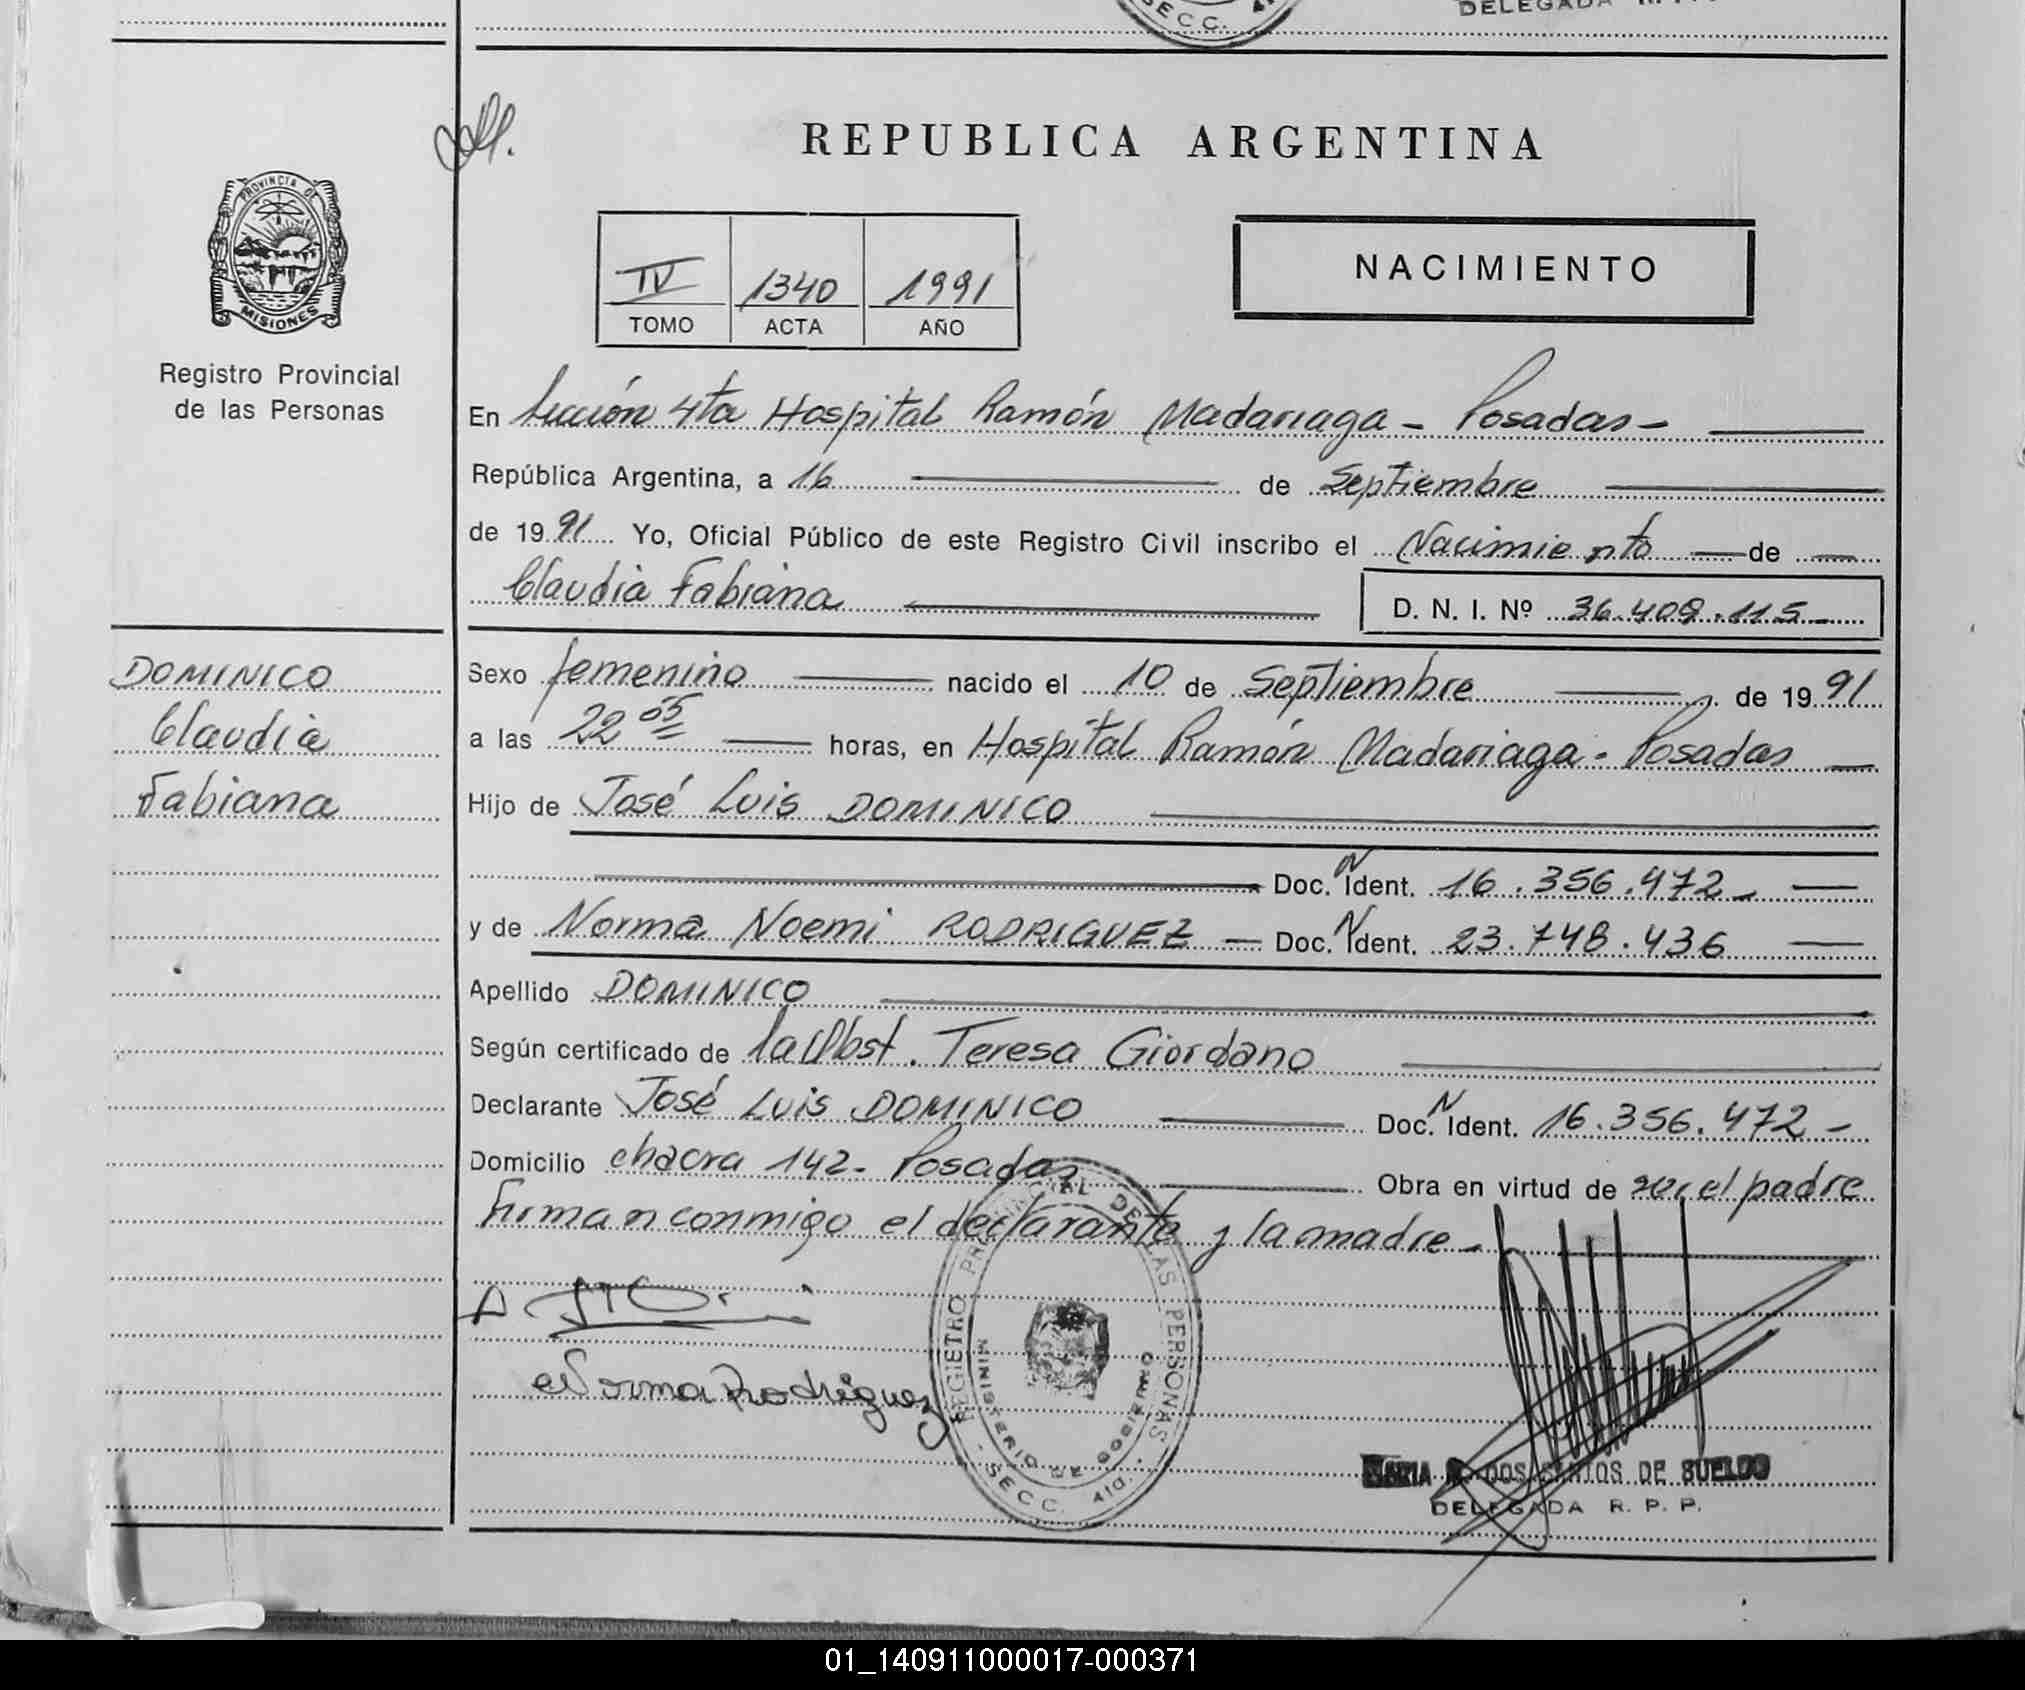 SECC.
DELEGADA R. P. P.
REPUBLICA ARGENTINA
PROVINCIA DE
MISIONES
Registro Provincial
de las Personas
IV 1340 1991
TOMO ACTA AÑO
NACIMIENTO
En Sección 4ta Hospital Ramón Madariaga - Posadas -
República Argentina, a 16 de Septiembre
de 1991 Yo, Oficial Público de este Registro Civil inscribo el Nacimiento de
Claudia Fabiana D. N. I. Nº 36.409.115-
DOMINICO
Claudia
Fabiana
Sexo femenino nacido el 10 de Septiembre de 1991
a las 22 05 horas, en Hospital Ramón Madariaga - Posadas
Hijo de José Luis DOMINICO
Doc. N Ident. 16.356.472-
y de Norma Noemi RODRIGUEZ - Doc. N Ident. 23.748.436
Apellido DOMINICO
Según certificado de la Obst. Teresa Giordano
Declarante José Luis DOMINICO Doc. N Ident. 16.356.472 -
Domicilio chacra 142- Posadas Obra en virtud de ser el padre
Firman conmigo el declarante y la madre -
Norma Rodriguez
REGISTRO PROVINCIAL DE LAS PERSONAS
MINISTERIO DE GOBIERNO
- SECC. 4ta. -
MARIA DOS SANTOS DE SUELDO
DELEGADA R. P. P.
01_140911000017-000371